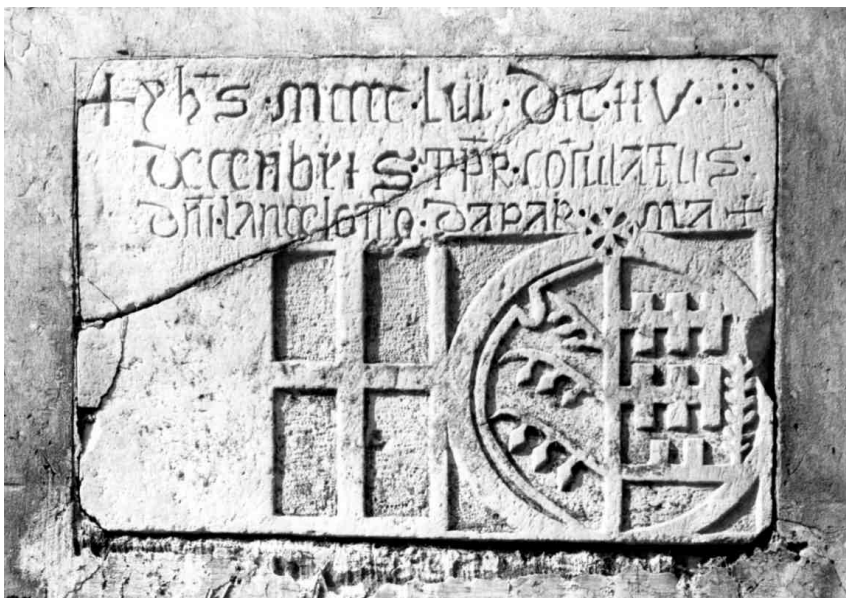 + yħs · mcccc · lvii · die · iiv ·
decenbris · tp̄r · cōsulatus ·
dn̄i · lanceloto · da par · ma +